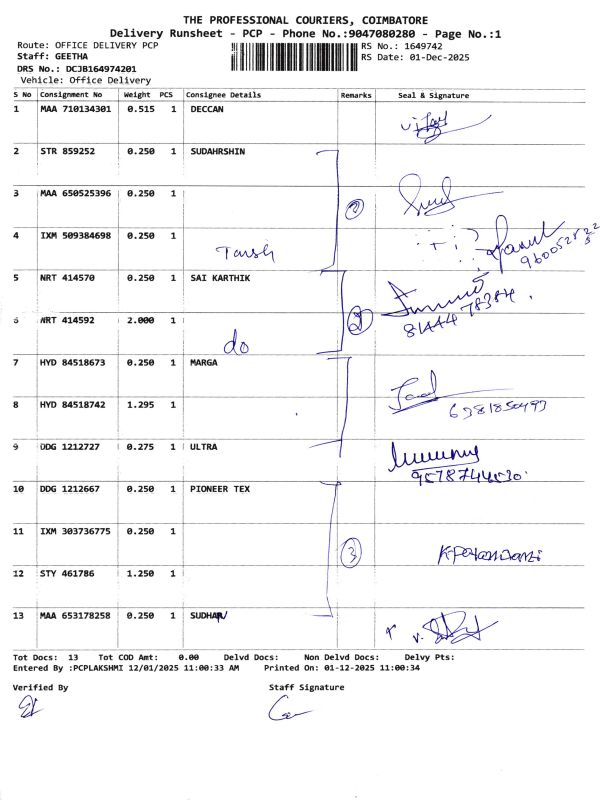 THE PROFESSIONAL COURIERS, COIMBATORE
Delivery Runsheet - PCP - Phone No.:9047080280 - Page No.:1
Route: OFFICE DELIVERY PCP RS No.: 1649742
Staff: GEETHA RS Date: 01-Dec-2025
DRS No.: DCJB164974201
Vehicle: Office Delivery
S No Consignment No Weight PCS Consignee Details Remarks Seal & Signature
1 MAA 710134301 0.515 1 DECCAN
2 STR 859252 0.250 1 SUDAHRSHIN
3 MAA 650525396 0.250 1
4 IXM 509384698 0.250 1
5 NRT 414570 0.250 1 SAI KARTHIK
6 NRT 414592 2.000 1 do 2
81444 78384
7 HYD 84518673 0.250 1 MARGA
8 HYD 84518742 1.295 1
6381850493
9 DDG 1212727 0.275 1 ULTRA
9578744530
10 DDG 1212667 0.250 1 PIONEER TEX
11 IXM 303736775 0.250 1 3
12 STY 461786 1.250 1
13 MAA 653178258 0.250 1 SUDHAN
Tot Docs: 13 Tot COD Amt: 0.00 Delvd Docs: Non Delvd Docs: Delvy Pts:
Entered By :PCPLAKSHMI 12/01/2025 11:00:33 AM Printed On: 01-12-2025 11:00:34
Verified By Staff Signature